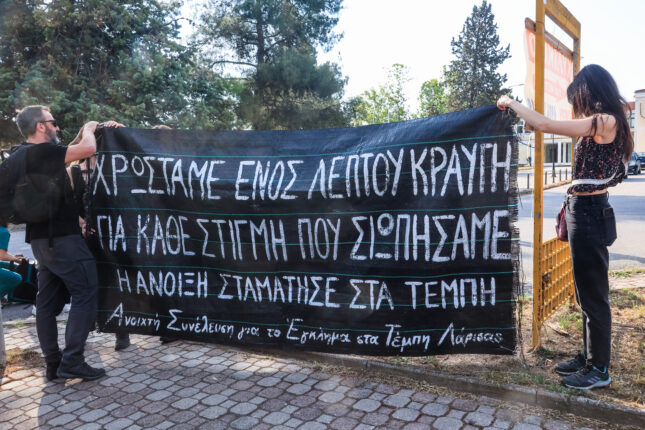 ΧΡΩΣΤΑΜΕ ΕΝΟΣ ΛΕΠΤΟΥ ΚΡΑΥΓΗ
ΓΙΑ ΚΑΘΕ ΣΤΙΓΜΗ ΠΟΥ ΣΙΩΠΗΣΑΜΕ
Η ΑΝΟΙΞΗ ΣΤΑΜΑΤΗΣΕ ΣΤΑ ΤΕΜΠΗ
Ανοιχτή Συνέλευση για το Έγκλημα στα Τέμπη Λάρισας